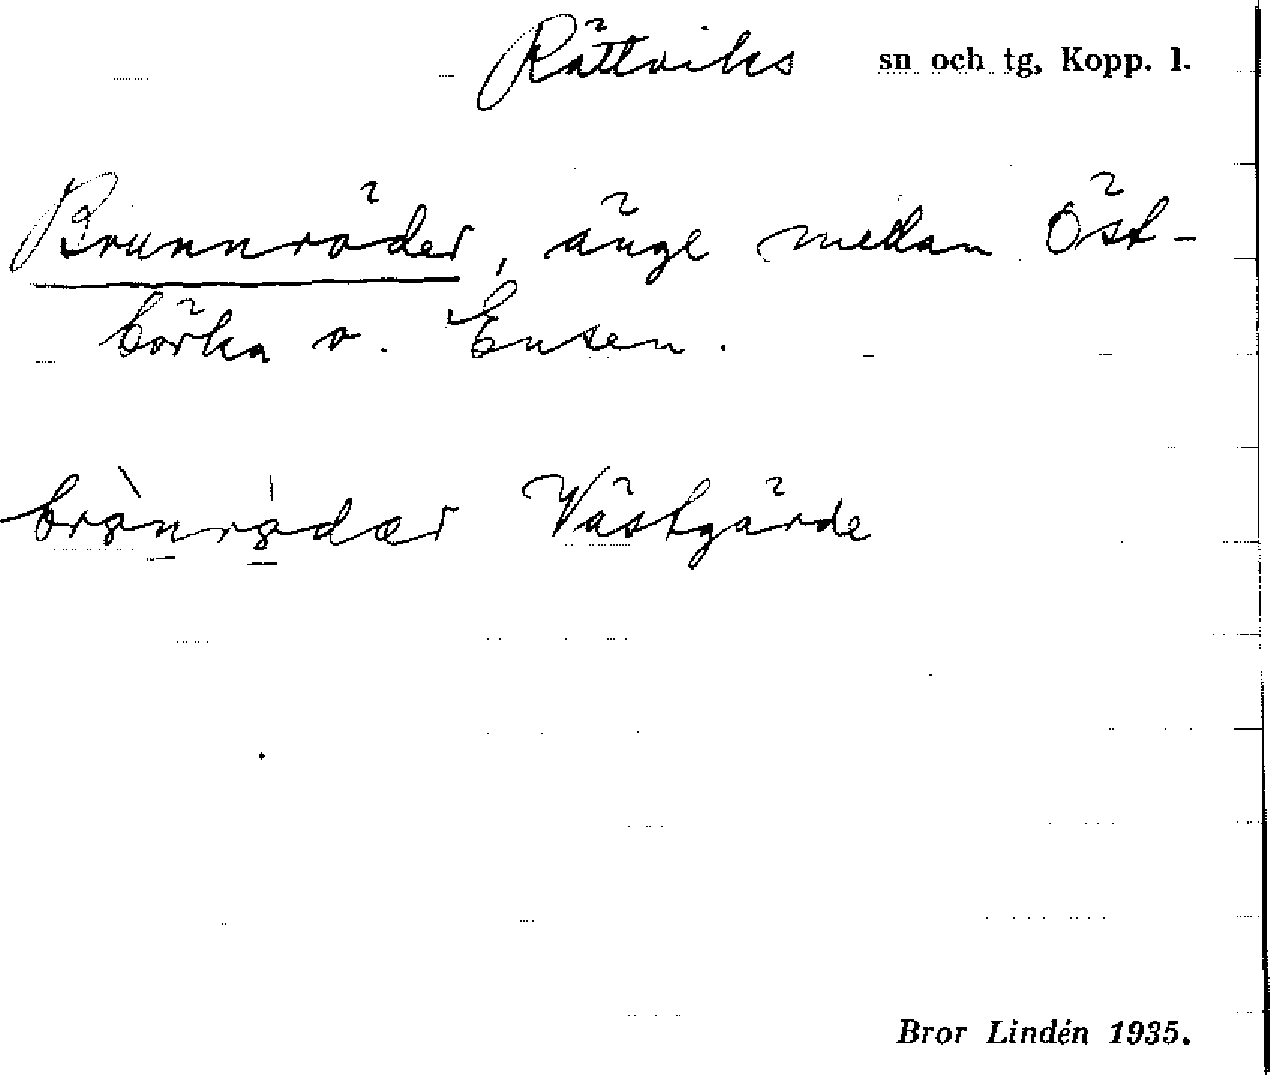 Rättviks sn och tg, Kopp. l.
Brunnröder, änge mellan Öst-
börka o. Ensen.
Västgärde
Bror Lindén 1935.